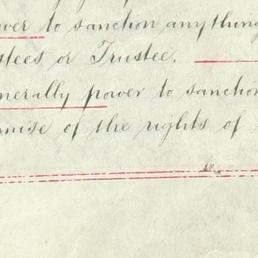 wer to sanction anything
stees or Trustee.
enerally power to sanction
mise of the rights of